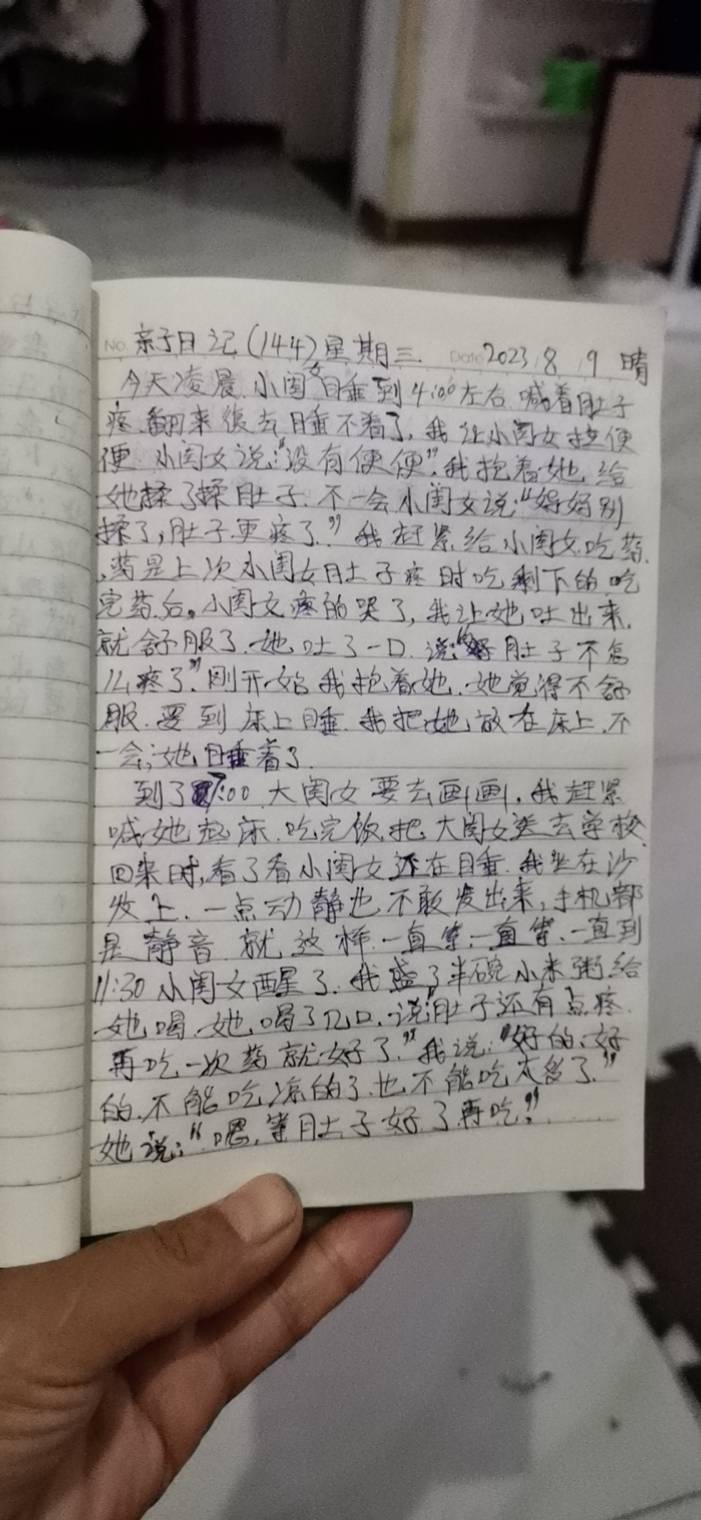 No. 亲子日记(144)星期三 Date 2023 8 9 晴
今天凌晨.小闺女睡到4:00左右.喊着肚子
疼.翻来復去睡不着了,我让小闺女拉便
便.小闺女说:“没有便便”.我抱着她.给
她揉了揉肚子.不一会小闺女说:“妈妈别
揉了,肚子更疼了.”我赶紧给小闺女吃药.
,药是上次小闺女肚子疼时吃剩下的.吃
完药后。小闺女疼的哭了,我让她吐出来.
就舒服了.她吐了一口.说:“肚子不怎
么疼了”.刚开始我抱着她.她觉得不舒
服.要到床上睡.我把她放在床上.不
一会,她睡着了.
到了7:00.大闺女要去画画,我赶紧
喊她起床.吃完饭.把大闺女送去学校.
回来时,看了看小闺女还在睡.我坐在沙
发上.一点动静也不敢发出来,手机都
是静音.就这样.一直等.一直等.一直到
11:30小闺女醒了.我盛了半碗小米粥给
她喝.她喝了几口.说“肚子还有点疼.
再吃一次药就好了.”我说:“好的.好
的.不能吃凉的了.也不能吃太多了.”
她说:“嗯.等肚子好了再吃.”